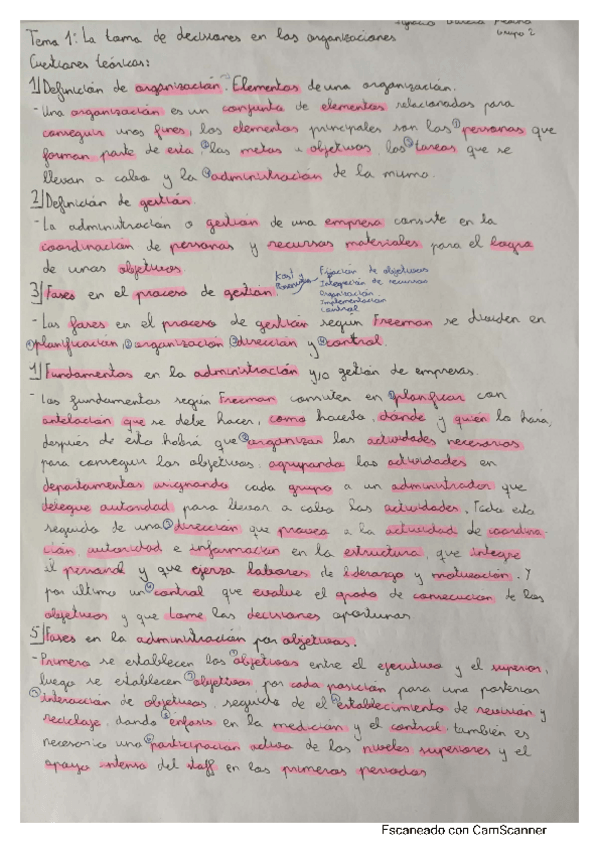 Grupo 2
Tema 1: La toma de decisiones en las organizaciones
Cuestiones teóricas:
1) Definición de organización. Elementos de una organización.
- Una organización es un conjunto de elementos relacionados para
conseguir unos fines, los elementos principales son las ① personas que
forman parte de esta, ② las metas u objetivos, las ③ tareas que se
llevan a cabo y la ④ administración de la misma.
2) Definición de gestión.
- La administración o gestión de una empresa consiste en la
coordinación de personas y recursos materiales para el logro
de unos objetivos.
3) Fases en el proceso de gestión.
Kast y
Fijación de objetivos
Integración de recursos
Organización
Implementación
Control
- Las fases en el proceso de gestión según Freeman se dividen en
① planificación, ② organización ③ dirección y ④ control.
4) Fundamentos en la administración y/o gestión de empresas.
- Los fundamentos según Freeman consisten en ① planificar con
antelación que se debe hacer, como hacerlo, dónde y quién lo hará,
después de esto habrá que ② organizar las actividades necesarias
para conseguir los objetivos, agrupando las actividades en
departamentos asignando cada grupo a un administrador que
delegue autoridad para llevar a cabo las actividades. Todo esto
seguido de una ③ dirección que provea a la actividad de coordina-
ción, autoridad e información en la estructura, que integre
al personal y que ejerza labores de liderazgo y motivación. Y
por ultimo un ④ control que evalue el grado de consecución de los
objetivos y que tome las decisiones oportunas.
5) Fases en la administración por objetivos.
- Primero se establecen los ① objetivos entre el ejecutivo y el superior,
luego se establecen ② objetivos por cada posición para una posterior
③ interacción de objetivos, seguido de el ④ establecimiento de revisión y
reciclaje, dando ⑤ énfasis en la medición y el control, también es
necesario una ⑥ participación activa de los niveles superiores y el
apoyo intenso del staff en los primeros periodos
Escaneado con CamScanner